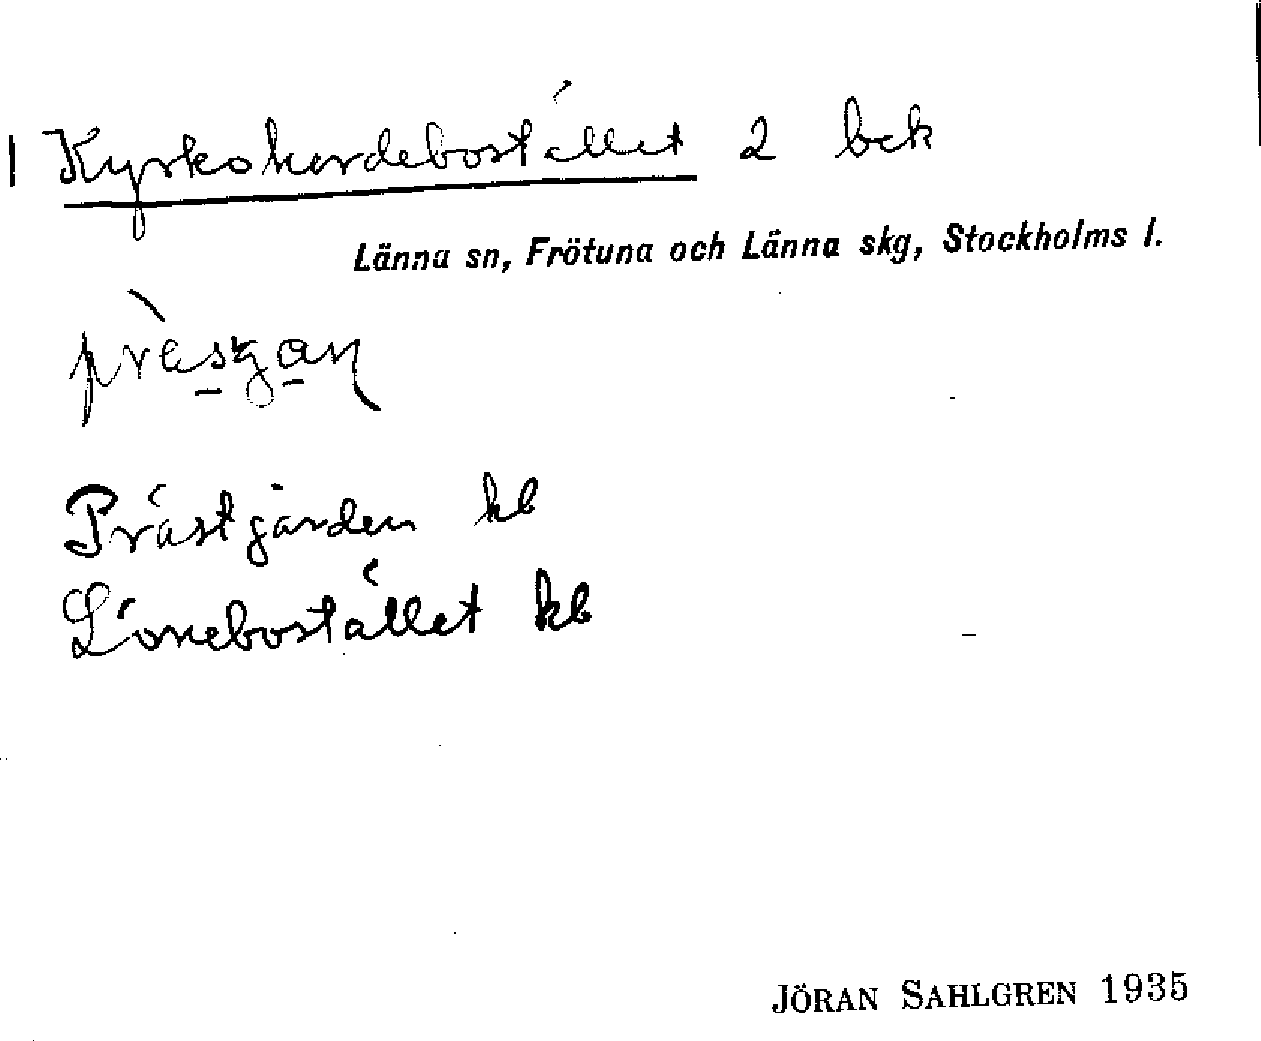 1 Kyrkoherdebostället 2 bck
Länna sn, Frötuna och Länna skg, Stockholms l.
Prästgården kb
Lönebostället kb
JÖRAN SAHLGREN 1935